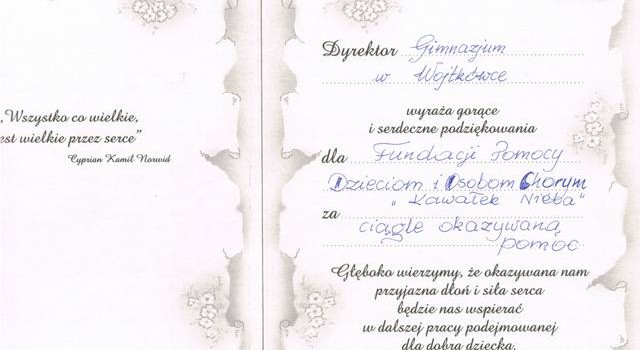 „Wszystko co wielkie,
est wielkie przez serce”
Cyprian Kamil Norwid
Dyrektor Gimnazjum
w Wojtkowce
wyraża gorące
i serdeczne podziękowania
dla Fundacji Pomocy
Dzieciom i Osobom Chorym
"Kawałek Nieba"
za ciągle okazywaną
pomoc
Głęboko wierzymy, że okazywana nam
przyjazna dłoń i siła serca
będzie nas wspierać
w dalszej pracy podejmowanej
dla dobra dziecka.